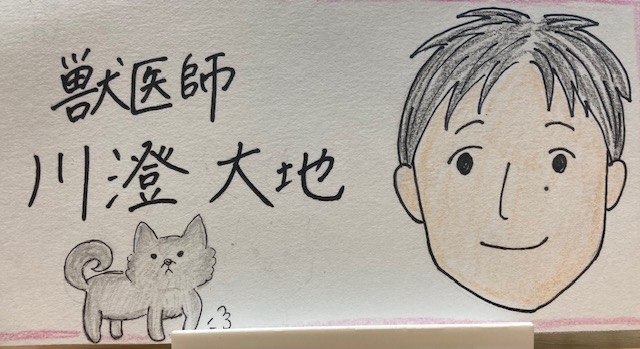 獣医師
川澄 大地